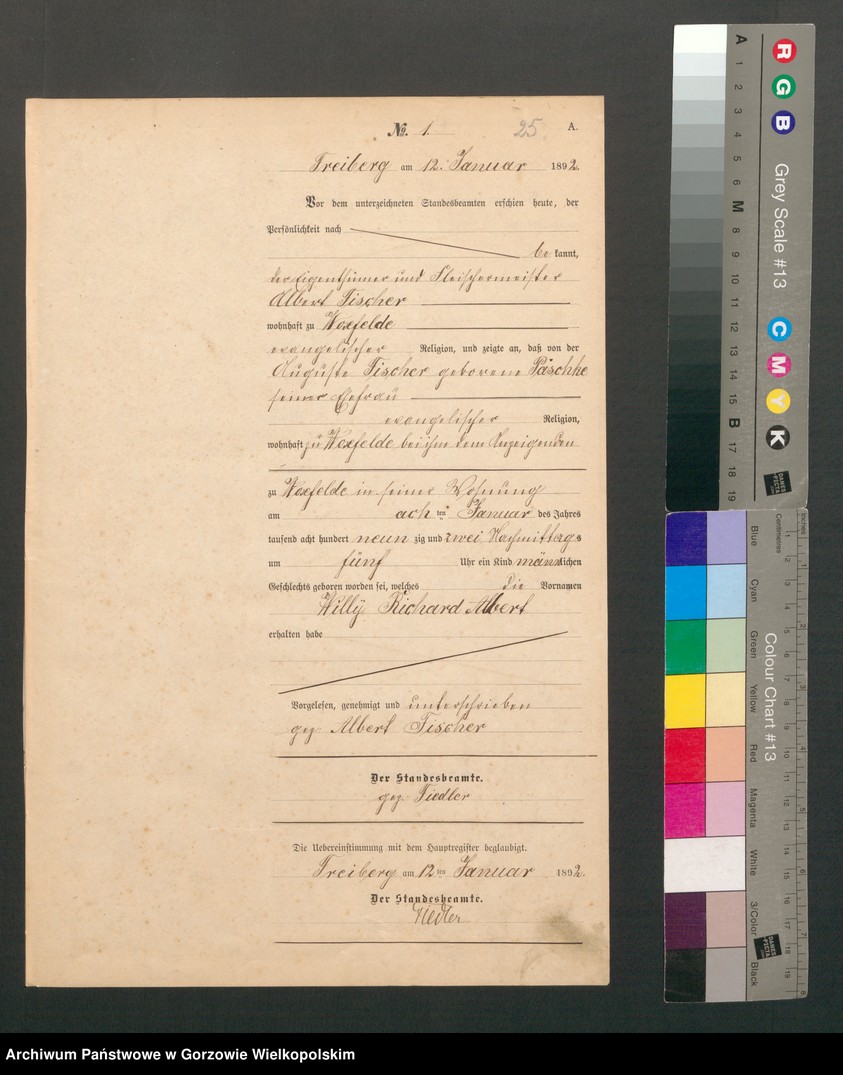 №. 1.
25
A.
Freiberg am 12. Januar 1892.
Vor dem unterzeichneten Standesbeamten erschien heute, der
Persönlichkeit nach
be kannt,
der Eigenthümer und Fleischermeister
Albert Fischer
wohnhaft zu Woxfelde
evangelischer Religion, und zeigte an, daß von der
Auguste Fischer geborene Päschke
seiner Ehefrau
evangelischer Religion,
wohnhaft zu Woxfelde bei ihm dem Anzeigenden
zu Woxfelde in seiner Wohnung
am achten Januar des Jahres
tausend acht hundert neunzig und zwei Nachmittags
um fünf Uhr ein Kind männlichen
Geschlechts geboren worden sei, welches die Vornamen
Willy Richard Albert
erhalten habe
Vorgelesen, genehmigt und unterschrieben
gez Albert Fischer
Der Standesbeamte.
gez. Fiedler
Die Uebereinstimmung mit dem Hauptregister beglaubigt.
Freiberg am 12ten Januar 1892.
Der Standesbeamte.
Fiedler
R
G
B
Grey Scale #13
C
M
Y
K
A 1 2 3 4 5 6 M 8 9 10 11 12 13 14 15 B 17 18 19
DANES PICTA
Colour Chart #13
Blue
Cyan
Green
Yellow
Red
Magenta
White
3/Color
Black
Centimetres
Inches
1 2 3 4 5 6 7 8 9 10 11 12 13 14 15 16 17 18 19
1 2 3 4 5 6 7 8
DANES PICTA
Archiwum Państwowe w Gorzowie Wielkopolskim